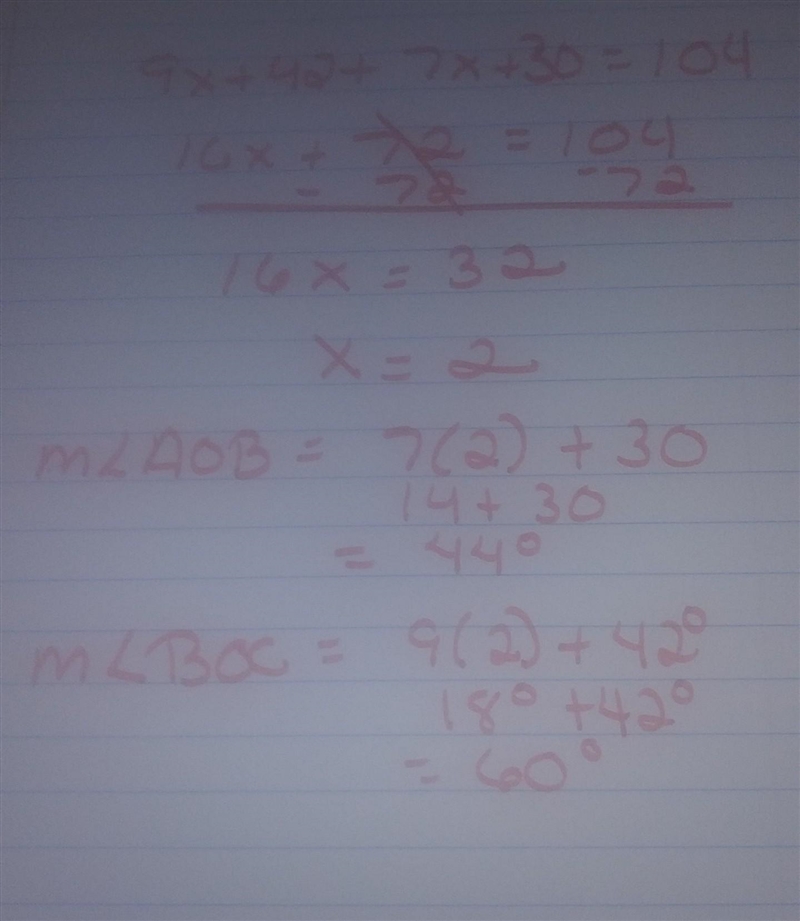 9x+42+ 7x+30=104
16x + 72 = 104
- 72 -72
16x = 32
x = 2
m∠AOB = 7(2) + 30
14 + 30
= 44°
m∠BOC = 9(2) + 42°
18° +42°
= 60°